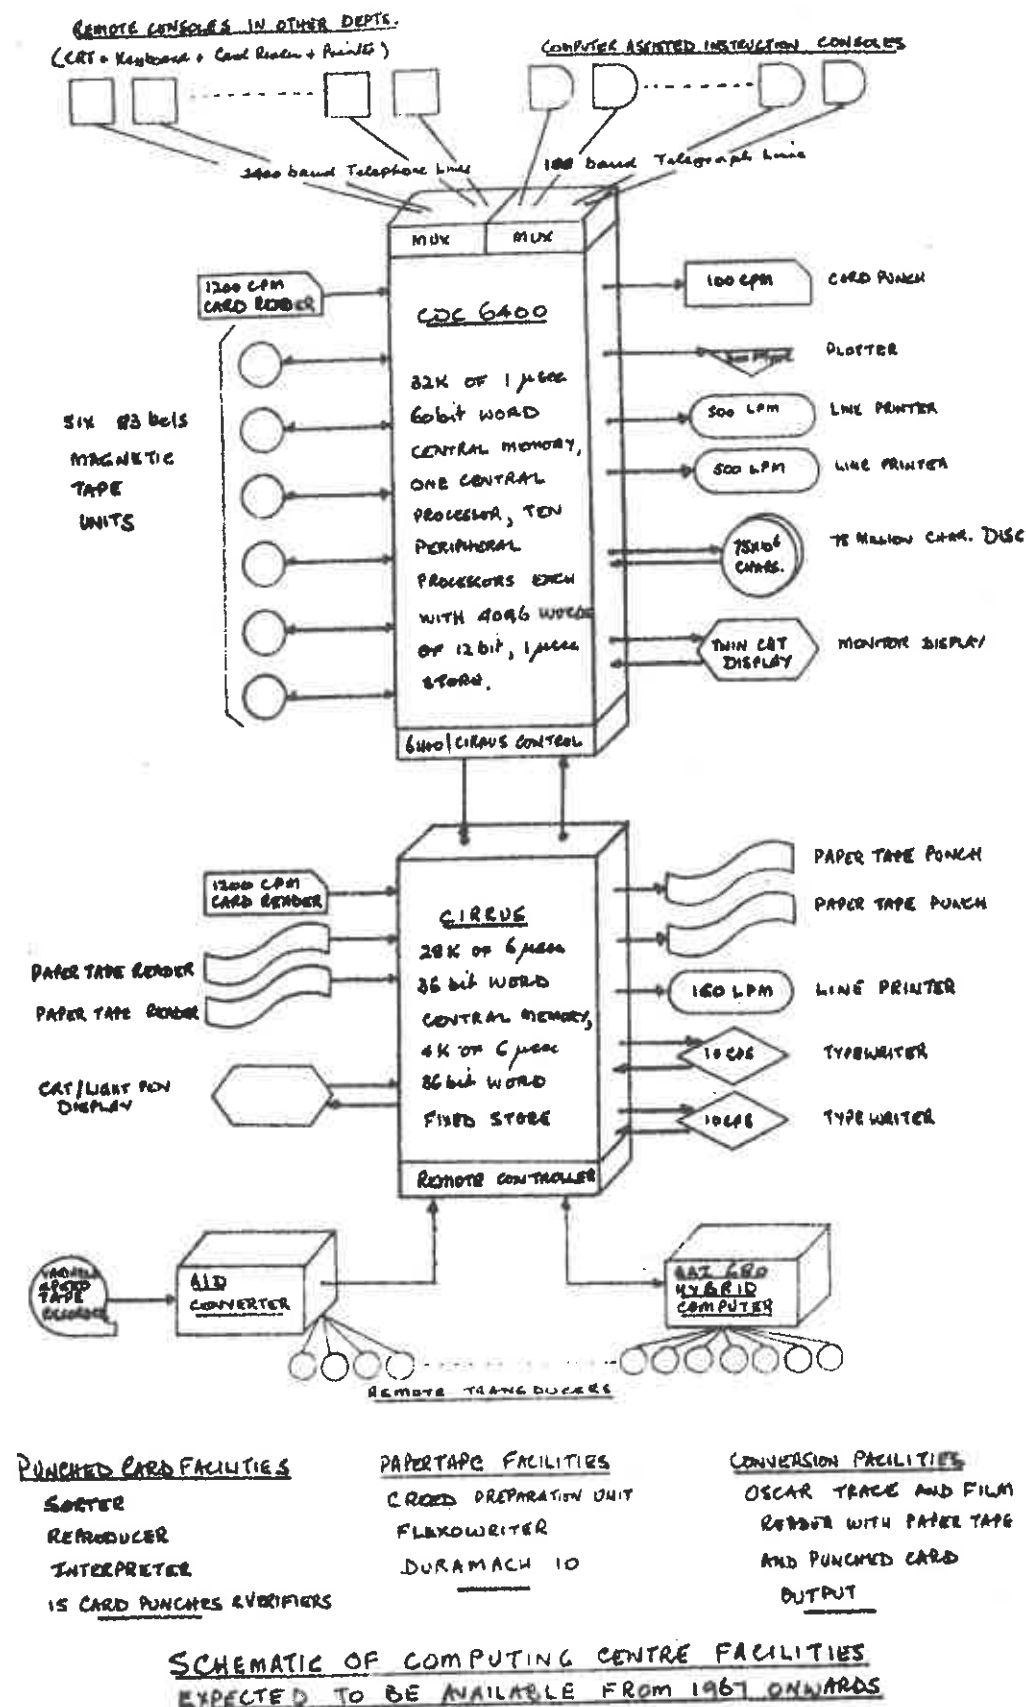 REMOTE CONSOLES IN OTHER DEPTS.
(CRT + Keyboard + Card Reader + Printer)
COMPUTER ASSISTED INSTRUCTION CONSOLES
2400 baud Telephone Lines
baud Telegraph Lines
MUX
MUX
1200 CPM
CARD READER
100 CPM
CARD PUNCH
CDC 6400
PLOTTER
32K OF 1 µsec
60 bit WORD
CENTRAL MEMORY,
ONE CENTRAL
PROCESSOR, TEN
PERIPHERAL
PROCESSORS EACH
WITH 4096 WORDS
OF 12 bit, 1 µsec
STORE.
SIX 83 bels
MAGNETIC
TAPE
UNITS
500 LPM
LINE PRINTER
500 LPM
LINE PRINTER
75X10⁶
CHARS.
75 MILLION CHAR. DISC
TWIN CRT
DISPLAY
MONITOR DISPLAY
6400/CIRRUS CONTROL
1200 CPM
CARD READER
PAPER TAPE PUNCH
PAPER TAPE PUNCH
CIRRUS
28K OF 6 µsec
36 bit WORD
CENTRAL MEMORY,
4K OF 6 µsec
36 bit WORD
FIXED STORE
PAPER TAPE READER
PAPER TAPE READER
160 LPM
LINE PRINTER
10 CPS
TYPEWRITER
CRT/LIGHT PEN
DISPLAY
10 CPS
TYPEWRITER
REMOTE CONTROLLER
VARIABLE
SPEED
TAPE
RECORDER
A/D
CONVERTER
HYBRID
COMPUTER
REMOTE TRANSDUCERS
PUNCHED CARD FACILITIES
SORTER
REPRODUCER
INTERPRETER
15 CARD PUNCHES & VERIFIERS
PAPERTAPE FACILITIES
CREED PREPARATION UNIT
FLEXOWRITER
DURAMACH 10
CONVERSION FACILITIES
OSCAR TRACE AND FILM
READER WITH PAPER TAPE
AND PUNCHED CARD
OUTPUT
SCHEMATIC OF COMPUTING CENTRE FACILITIES
EXPECTED TO BE AVAILABLE FROM 1967 ONWARDS